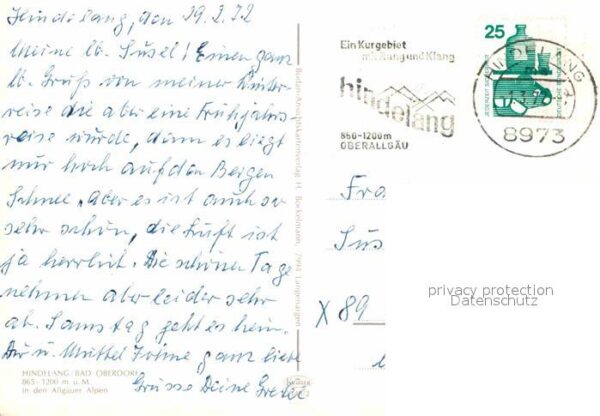 Hindelang, den 29.2.72
Meine lb. Susel! Einen ganz
lb. Gruß von meiner Winter-
reise die aber eine Frühjahrs-
reise wurde, denn es liegt
nur hoch auf den Bergen
Schnee, aber es ist auch so
sehr schön, die Luft ist
ja herrlich. Die schönen Tage
nehmen aber leider sehr
ab. Samstag geht es heim.
Dir u. ganz liebe
Grüsse Deine Gretel
HINDELANG/BAD OBERDORF
865-1200 m ü. M.
in den Allgäuer Alpen
Boden-Ansichtskartenverlag H. Bockelmann, 7994 Langenargen
Ein Kurgebiet
mit Klang
hindelang
850-1200m
OBERALLGÄU
25
HINDELANG
8973
Fra
Sus
X 89
privacy protection
Datenschutz